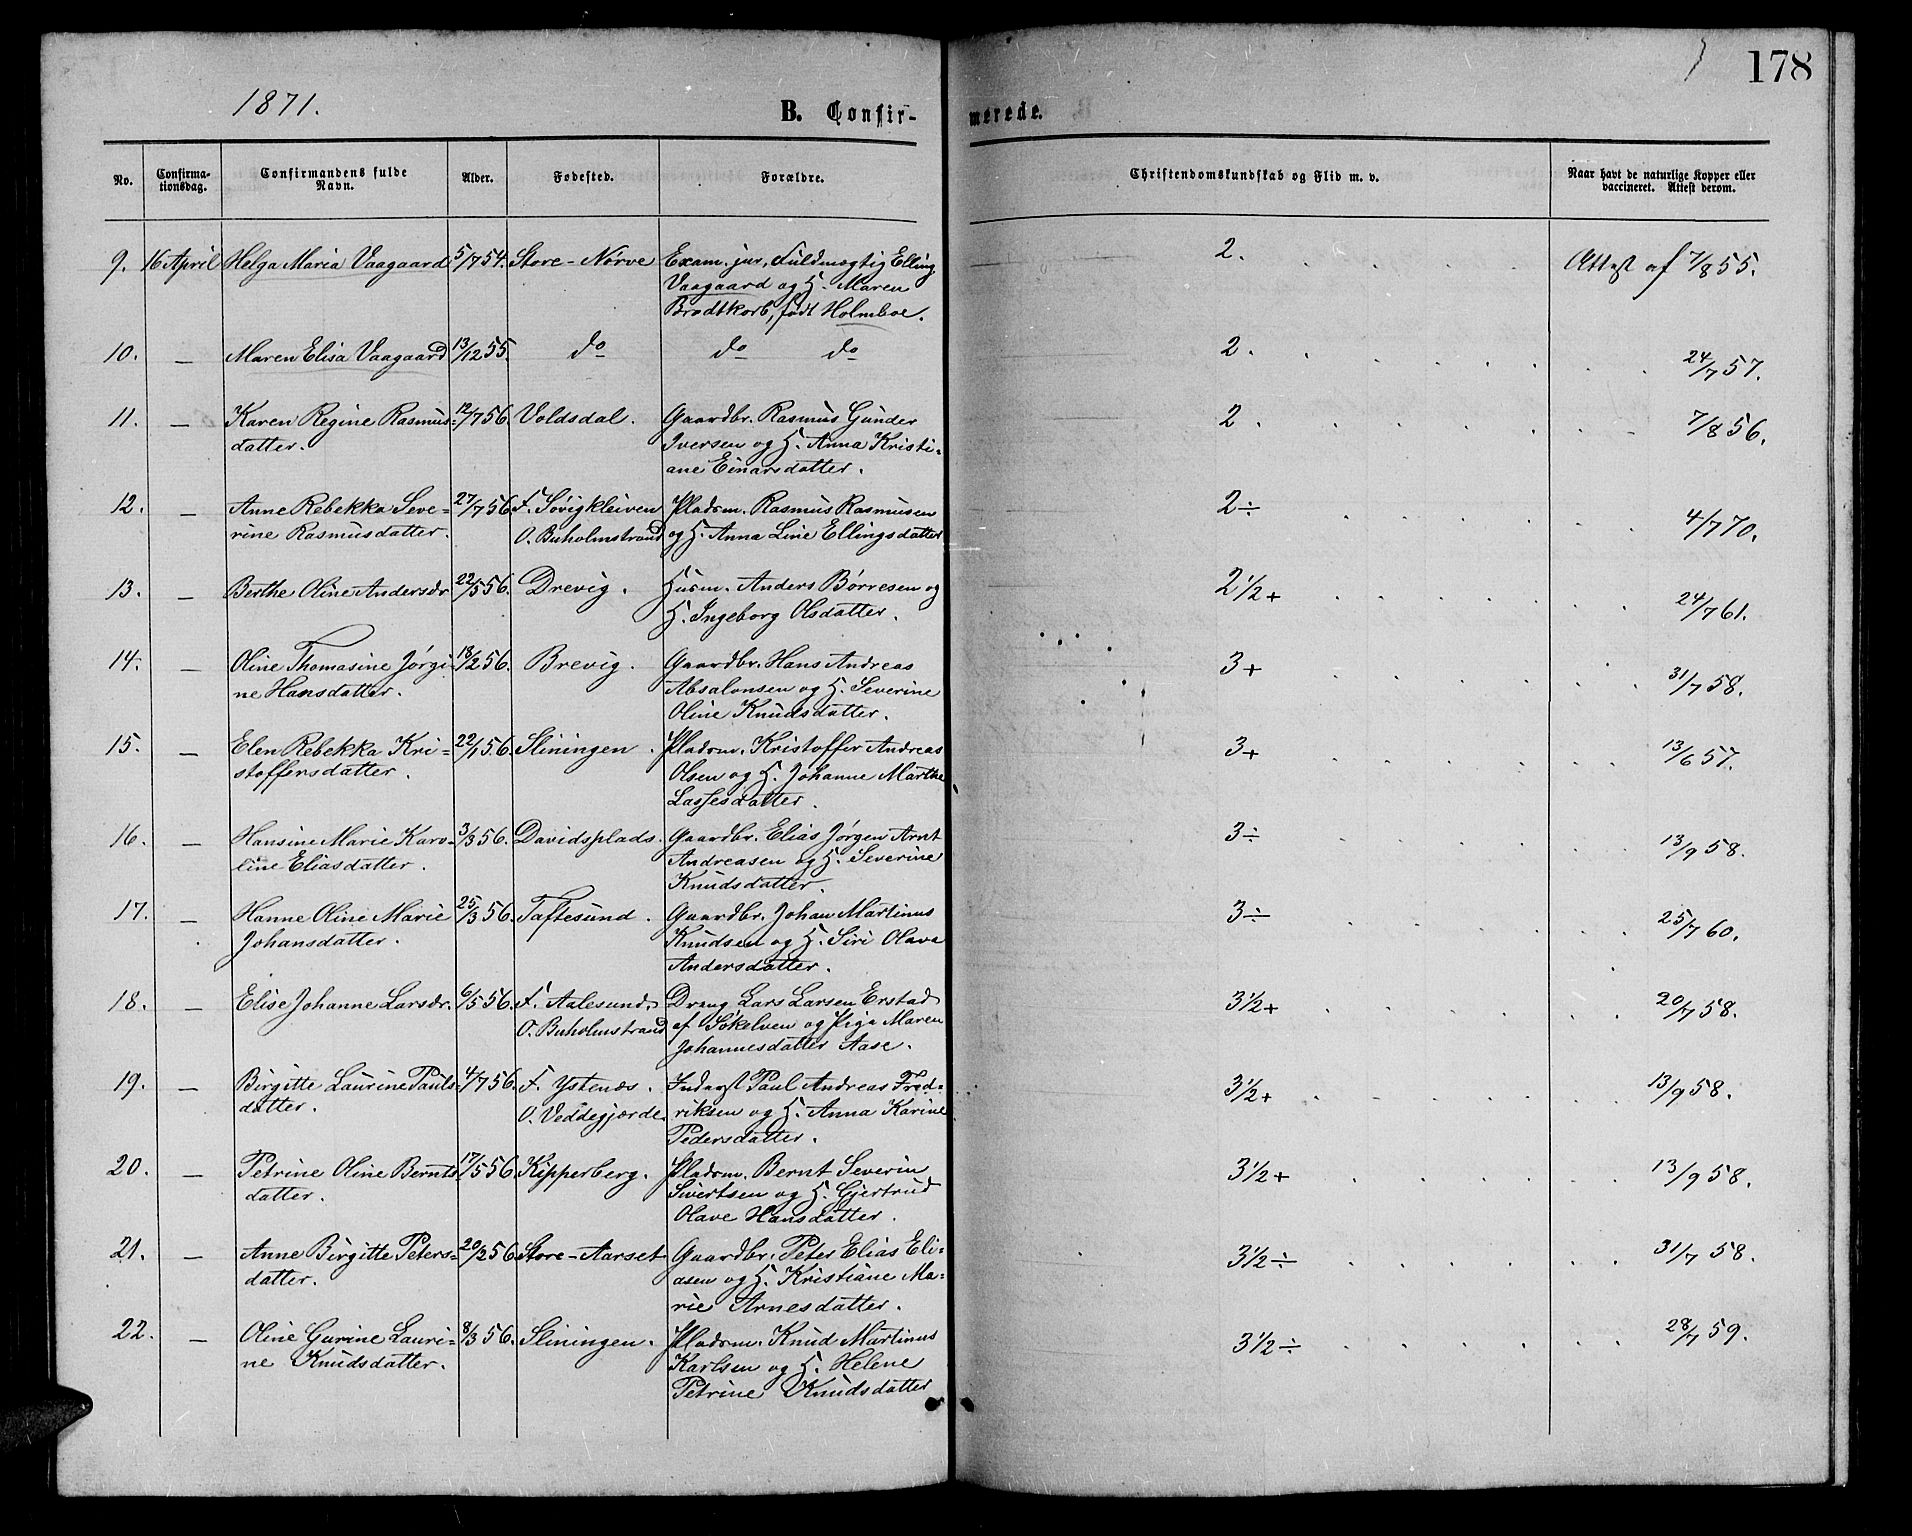 178
1871.
B. Confir-
merede.
No.
Confirma-
tionsdag.
Confirmandens fulde
Navn.
Alder.
Fødested.
Forældre.
Christendomskundskab og Flid m. v.
Naar havt de naturlige Kopper eller
vaccineret. Attest derom.
9. 16 April Helga Maria Vaagaard 5/7 54. Store-Nörve Exam. jur, Fuldmægtig Elling 2. Attest af 7/8 55.
Vaagaard og H. Maren
Brodtkorb, født Holmboe.
10. — Maren Elisa Vaagaard 13/12 55. do do do 2. 24/7 57.
11. — Karen Regine Rasmus- 12/7 56. Voldsdal. Gaardbr. Rasmus Gunder 2. 7/8 56.
datter. Iversen og H. Anna Kristi-
ane Einarsdatter.
12. — Anne Rebekka Seve- 27/7 56. F. Søvigkleiven Pladsm. Rasmus Rasmusen 2÷ 4/7 70.
rine Rasmusdatter. O. Buholmstrand og H. Anna Line Ellingsdatter
13. — Berthe Oline Andersdr 22/5 56. Drevig. Husm. Anders Børresen og 2½+ 24/7 61.
H. Ingeborg Olsdatter.
14. — Oline Thomasine Jørgi- 18/2 56. Brevig. Gaardbr. Hans Andreas 3+ 31/7 58.
ne Hansdatter. Absalonsen og H. Severine
Oline Knudsdatter.
15. — Elen Rebekka Kri- 22/1 56. Sliningen. Pladsm. Kristoffer Andreas 3+ 13/6 57.
stoffersdatter. Olsen og H. Johanne Marthe
Lassesdatter.
16. — Hansine Marie Karo- 3/3 56. Davidsplads. Gaardbr. Elias Jørgen Arnt 3÷ 13/9 58.
line Eliasdatter. Andreasen og H. Severine
Knudsdatter.
17. — Hanne Oline Marie 25/3 56. Taftesund. Gaardbr. Johan Martinus 3÷ 25/7 60.
Johansdatter. Knudsen og H. Siri Olava
Andersdatter.
18. — Elise Johanne Larsdr. 6/5 56. F. Aalesund, Dreng Lars Larsen Erstad 3½+ 20/7 58.
O. Buholmstrand af Søkelven og Pige Maren
Johannesdatter Aase.
19. — Birgitte Laurine Pauls- 4/7 56. F. Ystenæs. Inderst Paul Andreas Fred- 3½+ 13/9 58.
datter. O. Veddegjerde. riksen og H. Anna Karine
Pedersdatter.
20. — Petrine Oline Bernts- 17/5 56 Kipperberg. Pladsm. Bernt Severin 3½+ 13/9 58.
datter. Sivertsen og H. Gjertrud
Olave Hansdatter.
21. — Anne Birgitte Peters- 20/2 56 Store-Aarset Gaardbr. Peter Elias Eli- 3½÷ 31/7 58.
datter. asen og H. Kristiane Ma-
rie Arnesdatter.
22. — Oline Gurine Lauri- 8/3 56. Sliningen. Pladsm. Knud Martinus 3½÷ 28/7 59.
ne Knudsdatter. Karlsen og H. Helene
Petrine Knudsdatter